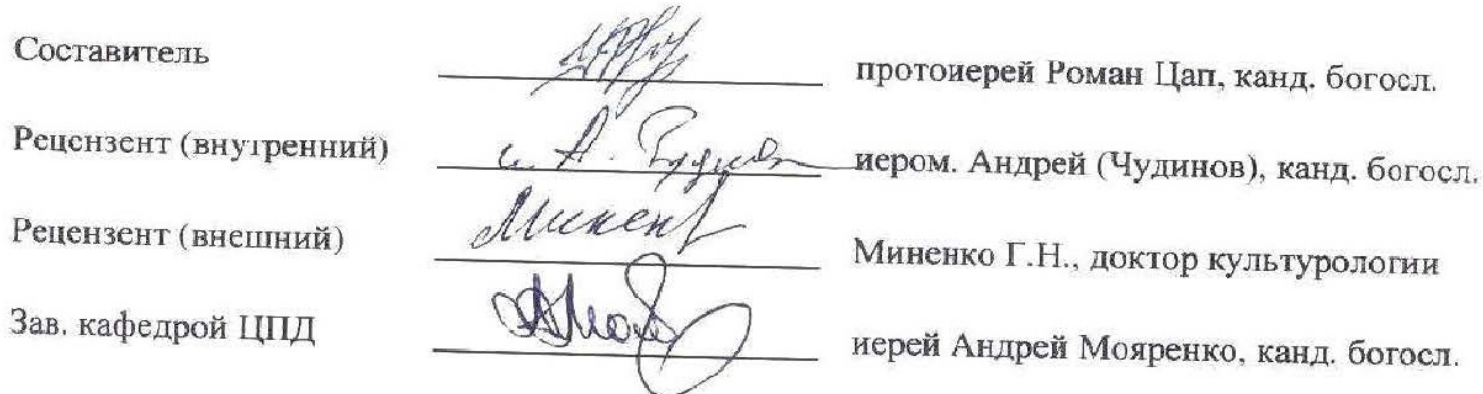 Составитель протоиерей Роман Цап, канд. богосл.
Рецензент (внутренний) и. А. иером. Андрей (Чудинов), канд. богосл.
Рецензент (внешний) Миненко Г.Н., доктор культурологии
Зав. кафедрой ЦПД иерей Андрей Мояренко, канд. богосл.